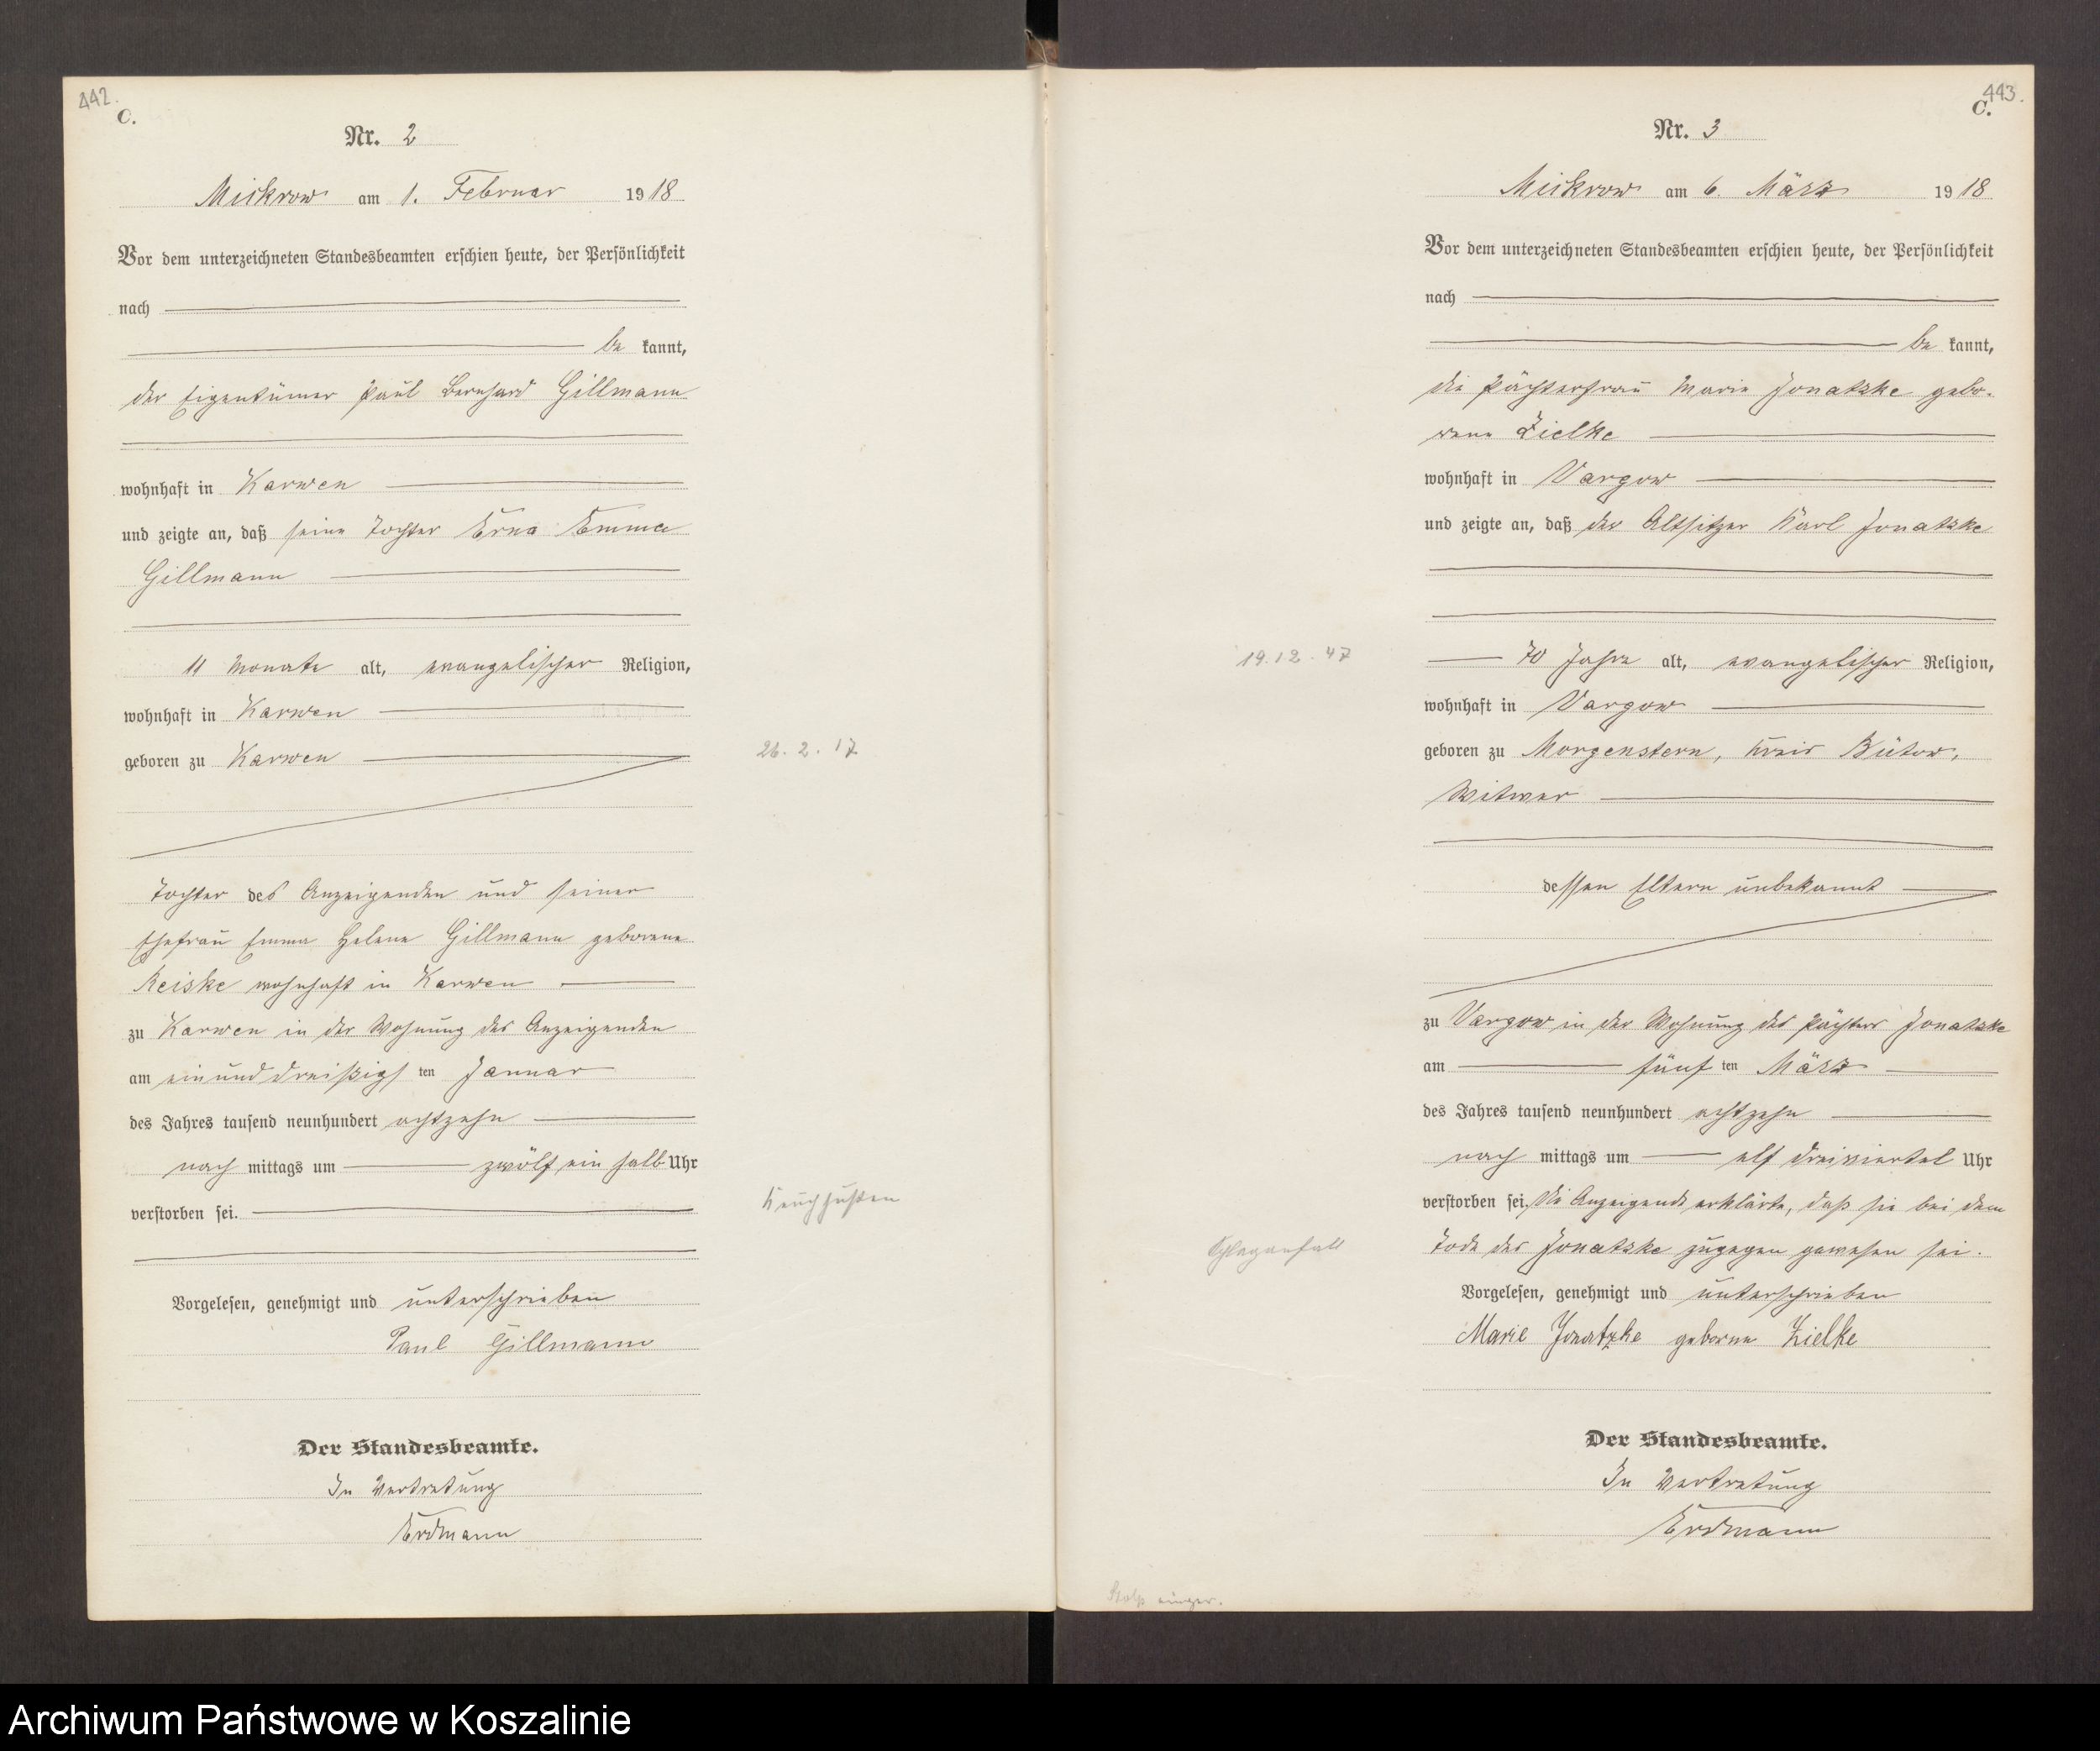 442.
C.
Nr. 2
Mickrow am 1. Februar 1918
Vor dem unterzeichneten Standesbeamten erschien heute, der Persönlichkeit
nach
be kannt,
der Eigentümer Paul Bernhard Gillmann
wohnhaft in Karwen
und zeigte an, daß seine Tochter Erna Emma
Gillmann
11 Monate alt, evangelischer Religion,
wohnhaft in Karwen
geboren zu Karwen
26. 2. 17
Tochter des Anzeigenden und seiner
Ehefrau Emma Helene Gillmann geborene
Reiske wohnhaft in Karwen
zu Karwen in der Wohnung des Anzeigenden
am einunddreißigsten Januar
des Jahres tausend neunhundert achtzehn
nach mittags um zwölf ein halb Uhr
verstorben sei.
Keuchhusten
Vorgelesen, genehmigt und unterschrieben
Paul Gillmann
Der Standesbeamte.
In Vertretung
Erdmann
443.
C.
Nr. 3
Mickrow am 6. März 1918
Vor dem unterzeichneten Standesbeamten erschien heute, der Persönlichkeit
nach
be kannt,
die Pächterfrau Marie Jonatzke gebo-
rene Zielke
wohnhaft in Vargow
und zeigte an, daß der Altsitzer Karl Jonatzke
19.12.47
70 Jahre alt, evangelischer Religion,
wohnhaft in Vargow
geboren zu Morgenstern, Kreis Bütow,
Witwer
dessen Eltern unbekannt
zu Vargow in der Wohnung des Pächters Jonatzke
am fünf ten März
des Jahres tausend neunhundert achtzehn
nach mittags um elf dreiviertel Uhr
verstorben sei. Die Anzeigende erklärte, daß sie bei dem
Tode des Jonatzke zugegen gewesen sei.
Schlaganfall
Vorgelesen, genehmigt und unterschrieben
Marie Jonatzke geborene Zielke
Der Standesbeamte.
In Vertretung
Erdmann
Archiwum Państwowe w Koszalinie